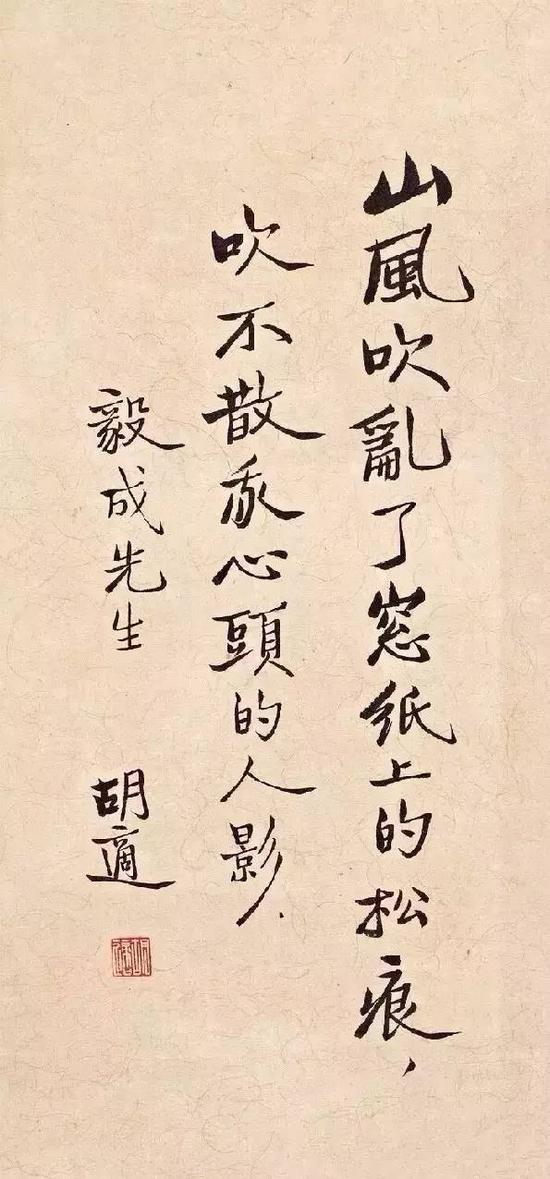 山風吹亂了窓纸上的松痕，
吹不散我心頭的人影．
毅成先生
胡適